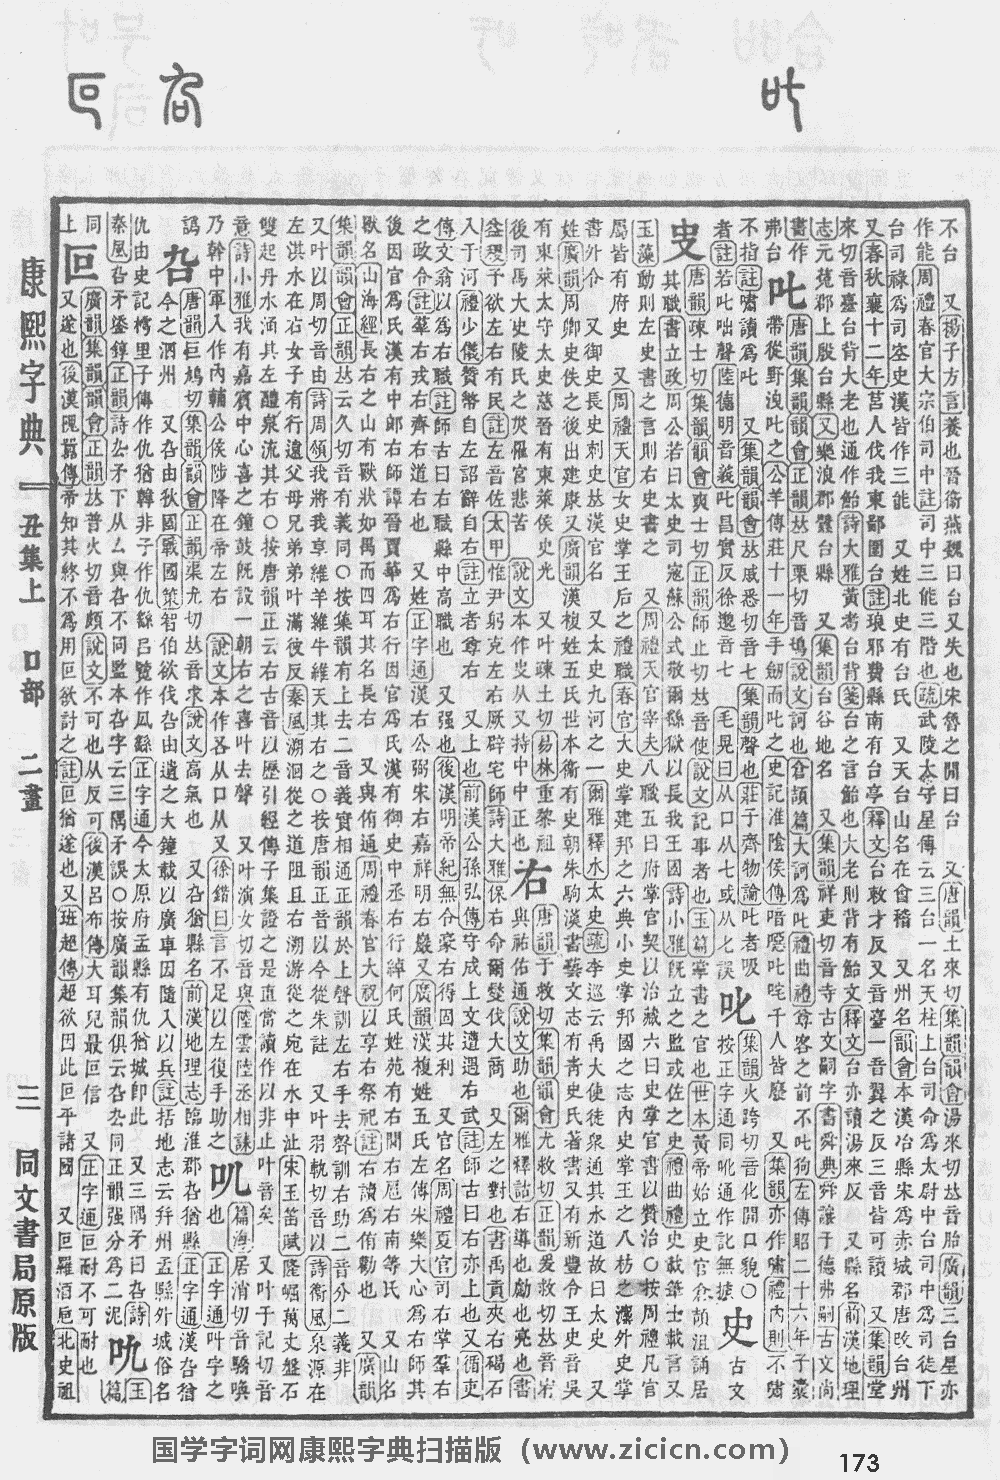 不台　又楊子方言養也晉衞燕魏曰台又失也宋魯之閒曰台　又唐韻土來切集韻韻會湯來切𠀤音胎廣韻三台星亦
作能周禮春官大宗伯司中註司中三能三階也疏武陵太守星傳云三台一名天柱上台司命爲太尉中台司中爲司徒下
台司祿爲司空史漢皆作三能　又姓北史有台氏　又天台山名在會稽　又州名韻會本漢冶縣宋爲赤城郡唐改台州
又春秋襄十二年莒人伐我東鄙圍台註琅耶費縣南有台亭釋文台敕才反又音臺一音翼之反三音皆可讀　又集韻堂
來切音臺台背大老也通作鮐詩大雅黃耇台背箋台之言鮐也大老則背有鮐文釋文台亦讀湯來反　又縣名前漢地理
志元菟郡上殷台縣又樂浪郡蠶台縣　又集韻台谷地名　又集韻祥吏切音寺古文嗣字書舜典舜讓于德弗嗣古文尚
書作
弗台
叱
唐韻集韻韻會正韻𠀤尺栗切音䲴說文訶也倉頡篇大訶爲叱禮曲禮尊客之前不叱狗左傳昭二十六年子囊
帶從野洩叱之公羊傳莊十一年手劒而叱之史記淮隂侯傳喑噁叱咤千人皆廢　又集韻亦作嘯禮內則不嘯
不指註嘯讀爲叱　又集韻韻會𠀤戚悉切音七集韻聲也莊子齊物論叱者吸
者註若叱咄聲陸德明音義叱昌實反徐邈音七　毛晃曰从口从七或从𠤎誤
𠮟
集韻火跨切音化開口貌○
按正字通同吪通作訛無據
史
古文
㕜
唐韻疎士切集韻韻會爽士切正韻師止切𠀤音使說文記事者也玉篇掌書之官也世本黃帝始立史官倉頡沮誦居
其職書立政周公若曰太史司寇蘇公式敬爾繇獄以長我王國詩小雅旣立之監或佐之史禮曲禮史載筆士載言又
玉藻動則左史書之言則右史書之　又周禮天官宰夫八職五曰府掌官契以治藏六曰史掌官書以贊治○按周禮凡官
屬皆有府史　又周禮天官女史掌王后之禮職春官大史掌建邦之六典小史掌邦國之志內史掌王之八枋之灋外史掌
書外令　又御史長史刺史𠀤漢官名　又太史九河之一爾雅釋水太史疏李巡云禹大使徒衆通其水道故曰太史　又
姓廣韻周卿史佚之後出建康又廣韻漢複姓五氏世本衞有史朝朱駒漢書藝文志有靑史氏著書又有新豐令王史音吳
有東萊太守太史慈晉有東萊侯史光　又叶疎土切易林重黎祖
後司馬大史陵氏之災雁宮悲苦　說文本作㕜从又持中中正也
右
唐韻于救切集韻韻會尤救切正韻爰救切𠀤音宥
與祐佑通說文助也爾雅釋詁右導也勴也亮也書
益稷予欲左右有民註左音佐太甲惟尹躬克左右厥辟宅師詩大雅保右命爾燮伐大商　又左之對也書禹貢夾右碣石
入于河禮少儀贊幣自左詔辭自右註立者尊右　又上也前漢公孫弘傳守成上文遭遇右武註師古曰右亦上也又儒吏
傳文翁以爲右職註師古曰右職縣中高職也　又强也後漢明帝紀無令豪右得固其利　又官名周禮夏官司右掌羣右
之政令註羣右戎右齊右道右也　又姓正字通漢右公弼宋右嘉祥明右巖又廣韻漢複姓五氏左傳宋樂大心爲右師其
後因官爲氏漢有中郎右師譚晉賈華爲右行因官爲氏漢有御史中丞右行綽何氏姓苑有右閭右扈右南等氏　又山名
獸名山海經長右之山有獸狀如禺而四耳其名長右　又與侑通周禮春官大祝以享右祭祀註右讀爲侑勸也　又廣韻
集韻韻會正韻𠀤云久切音有義同○按集韻有上去二音義實相通正韻於上聲訓左右手去聲訓右助二音分二義非
又叶以周切音由詩周頌我將我享維羊維牛維天其右之○按唐韻正音以今從朱註　又叶羽軌切音以詩衞風泉源在
左淇水在右女子有行遠父母兄弟弟叶滿彼反秦風溯洄從之道阻且右溯游從之宛在水中沚宋玉笛賦隆崛萬丈盤石
雙起丹水涌其左醴泉流其右○按唐韻正云右古音以歷引經傳子集證之是直當讀作以非止叶音矣　又叶于記切音
意詩小雅我有嘉賓中心喜之鐘鼓旣設一朝右之喜叶去聲　又叶演女切音與陸雲陸丞相誄
乃幹中軍入作內輔公侯陟降在帝左右　說文本作从口从又徐鍇曰言不足以左復手助之
篇海居消切音驕喚
也正字通叫字之
譌
叴
唐韻巨鳩切集韻韻會正韻渠尤切𠀤音求說文高氣也　又叴猶縣名前漢地理志臨淮郡叴猶縣正字通漢叴猶
今之泗州　又叴由狄國戰國策智伯欲伐叴由遺之大鐘載以廣車因隨入以兵註括地志云幷州盂縣外城俗名
仇由史記樗里子傳作仇猶韓非子作仇繇呂覽作繇正字通今太原府盂縣有仇猶城卽此　又三隅矛曰叴詩
秦風叴矛鋈錞正韻詩厹矛下从厶與叴不同監本叴字云三隅矛誤○按廣韻集韻俱云叴厹同正韻强分爲二泥
玉
篇
同
上
叵
廣韻集韻韻會正韻𠀤普火切音頗說文不可也从反可後漢呂布傳大耳兒最叵信　又正字通叵耐不可耐也
又遂也後漢隗囂傳帝知其終不爲用叵欲討之註叵猶遂也又班超傳超欲因此叵平諸國　又叵羅酒卮北史祖
康熙字典　丑集上　口部　二畫　三　同文書局原版
国学字词网康熙字典扫描版（www.zicicn.com）
173